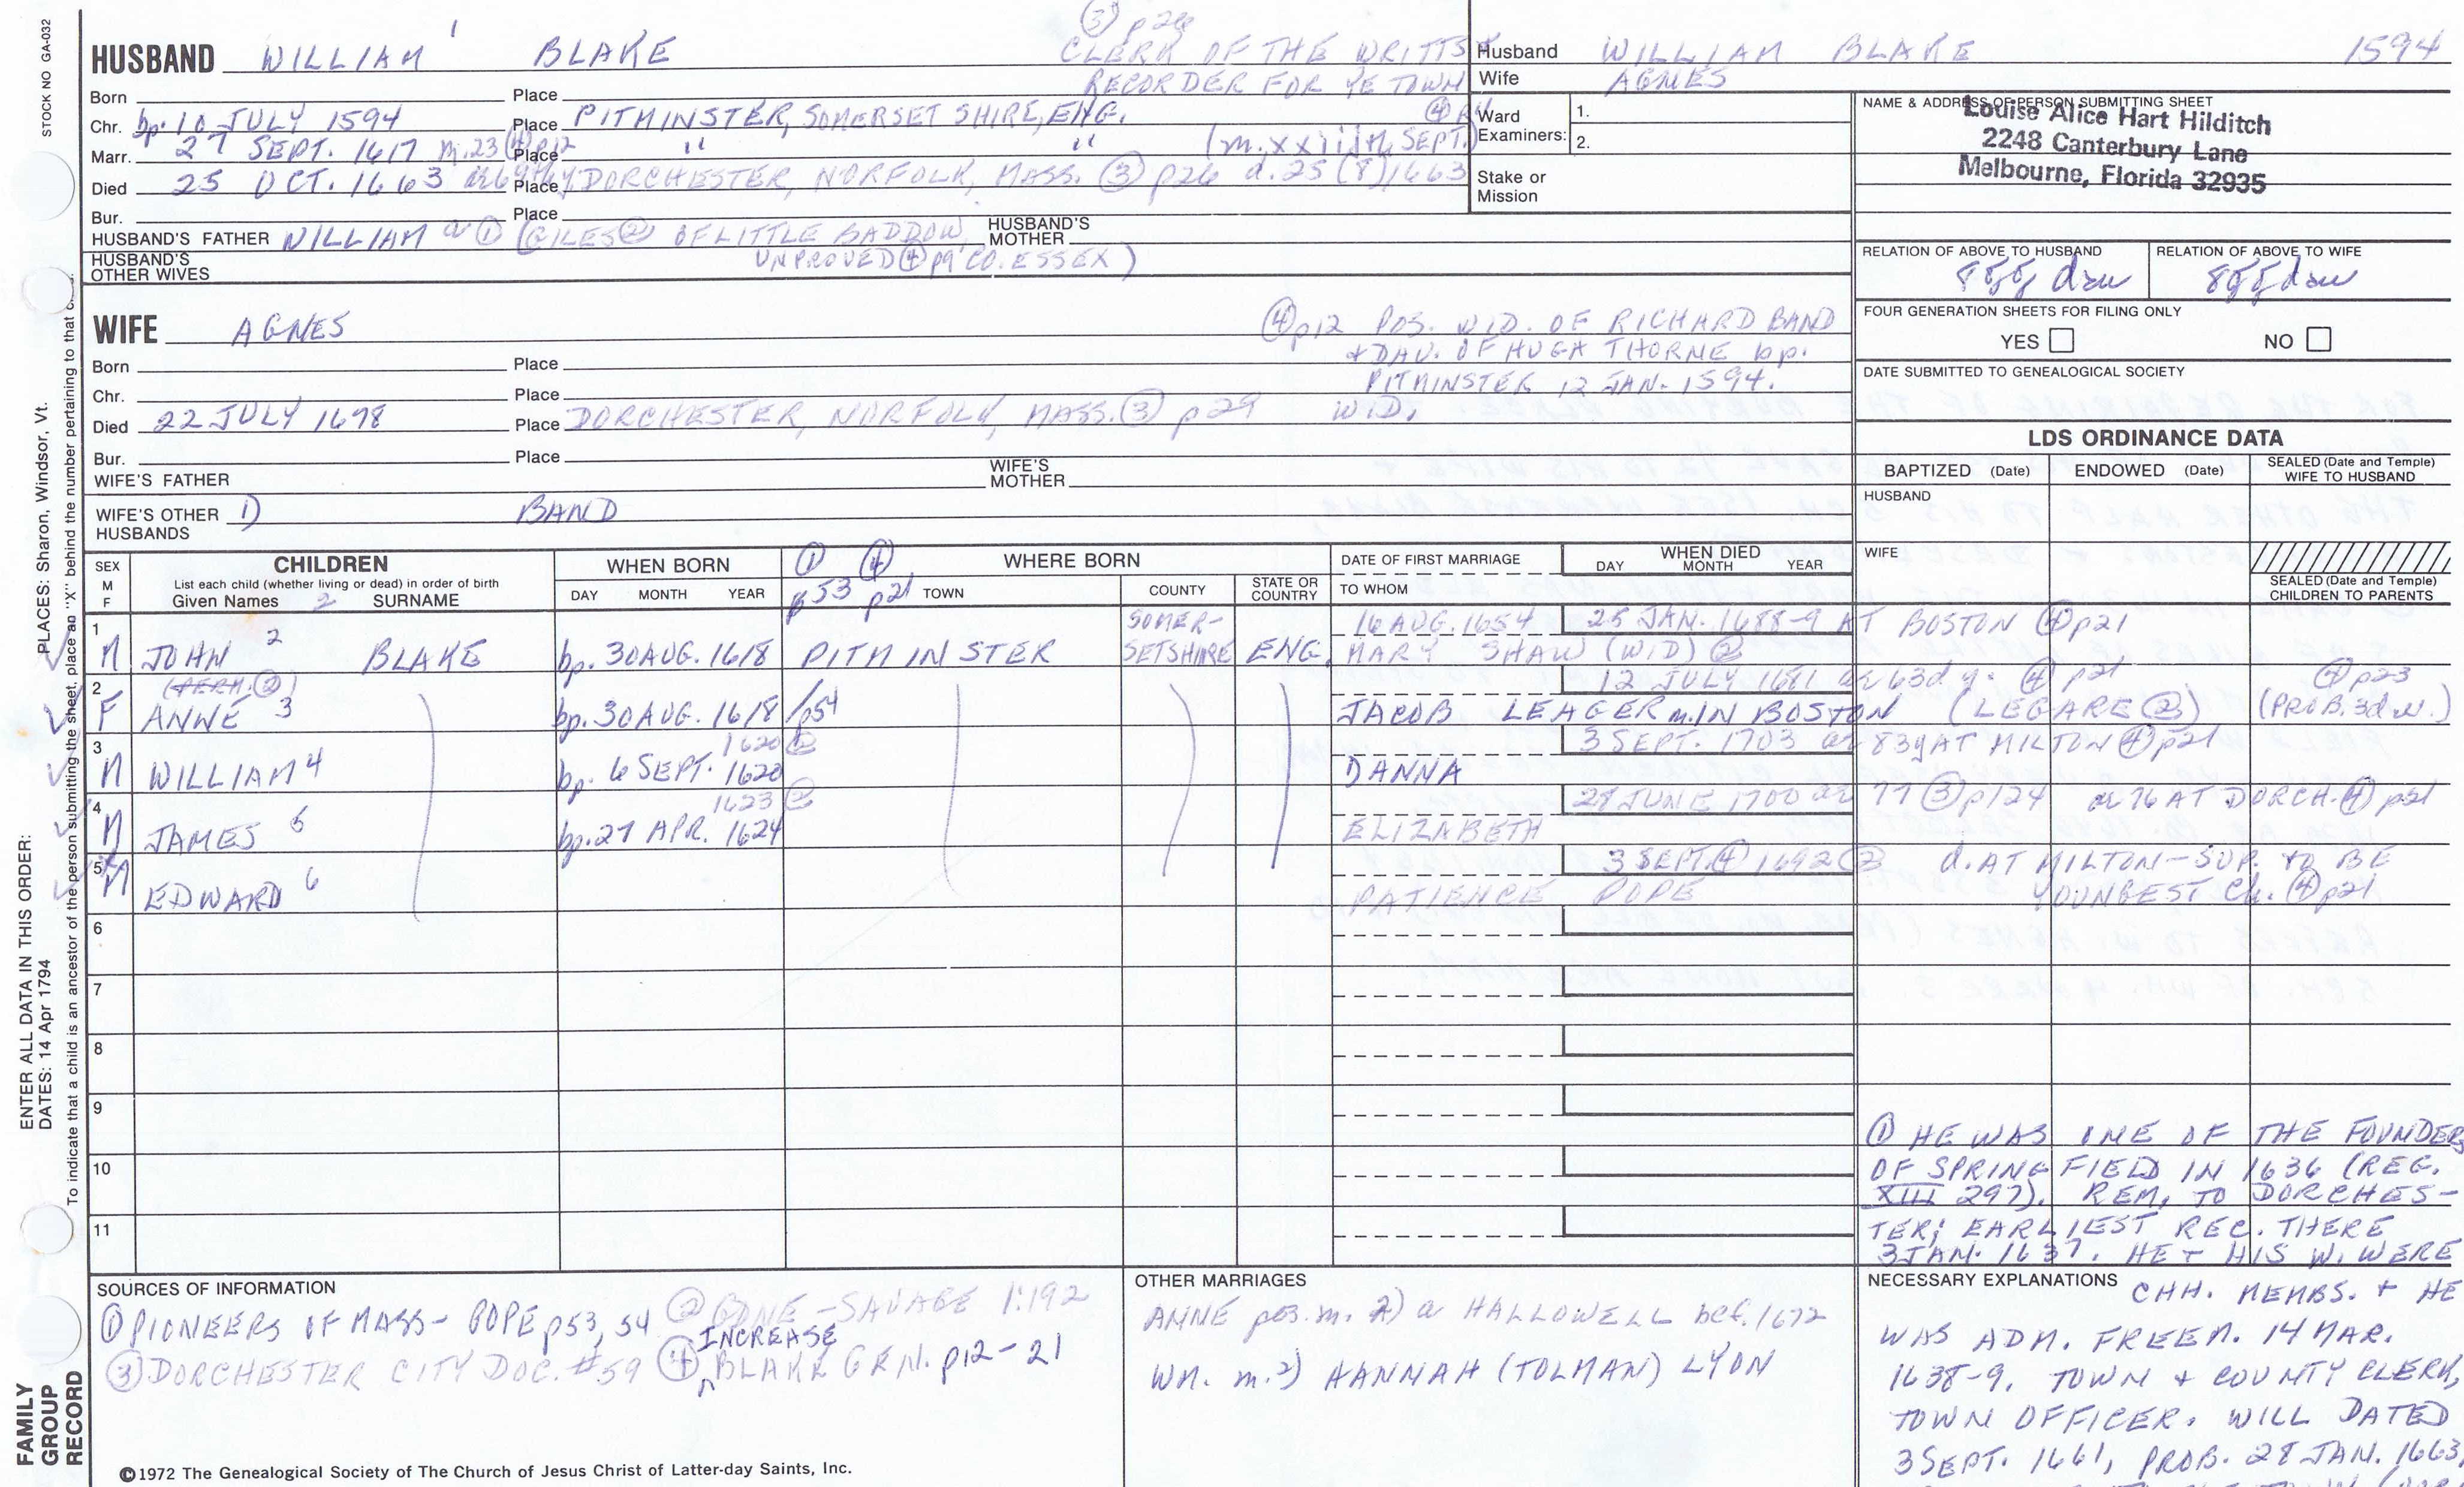 STOCK NO GA-032
③ p26
HUSBAND WILLIAM 1 BLAKE CLERK OF THE WRITTS
RECORDER FOR YE TOWN
Husband WILLIAM BLAKE 1594
Wife AGNES
Born Place
Chr. bp. 10 JULY 1594 Place PITMINSTER, SOMERSET SHIRE, ENG.
Marr. 27 SEPT. 1617 m. 23 ④ p12 Place " " (m. xxiijth SEPT.)
Died 25 OCT. 1663 Place DORCHESTER, NORFOLK, MASS. ③ p26 d. 25 (8) 1663
Bur. Place
HUSBAND'S FATHER WILLIAM ① (GILES ② OF LITTLE BADDOW, HUSBAND'S MOTHER
UNPROVED ④ p9 CO. ESSEX)
HUSBAND'S OTHER WIVES
Ward Examiners: 1.
2.
Stake or Mission
NAME & ADDRESS OF PERSON SUBMITTING SHEET
Louise Alice Hart Hilditch
2248 Canterbury Lane
Melbourne, Florida 32935
RELATION OF ABOVE TO HUSBAND RELATION OF ABOVE TO WIFE
8ggdau 8ggdau
FOUR GENERATION SHEETS FOR FILING ONLY
YES NO
DATE SUBMITTED TO GENEALOGICAL SOCIETY
WIFE AGNES ④ p12 POS. WID. OF RICHARD BAND
+ DAU. OF HUGH THORNE bp.
PITMINSTER 12 JAN. 1594.
Born Place
Chr. Place
Died 22 JULY 1678 Place DORCHESTER, NORFOLK, MASS. ③ p29 WID.
Bur. Place
WIFE'S FATHER WIFE'S MOTHER
WIFE'S OTHER HUSBANDS 1) BAND
LDS ORDINANCE DATA
BAPTIZED (Date) ENDOWED (Date) SEALED (Date and Temple) WIFE TO HUSBAND
HUSBAND
WIFE
SEALED (Date and Temple) CHILDREN TO PARENTS
SEX M F
CHILDREN
List each child (whether living or dead) in order of birth
Given Names 2 SURNAME
WHEN BORN
DAY MONTH YEAR
① ④ WHERE BORN
p53 p21 TOWN COUNTY STATE OR COUNTRY
DATE OF FIRST MARRIAGE
TO WHOM
WHEN DIED
DAY MONTH YEAR
1 M JOHN 2 BLAKE bp. 30 AUG. 1618 PITMINSTER SOMER-SETSHIRE ENG. 16 AUG. 1654 25 JAN. 1688-9 AT BOSTON ④ p21
MARY SHAW (WID) ②
2 F ANNE 3 bp. 30 AUG. 1618 /p54 12 JULY 1681 ae 63d y. ④ p21 ④ p23
JACOB LEAGER m. IN BOSTON (LEGARE ②) (PROB. 3d w.)
3 M WILLIAM 4 bp. 6 SEPT. 1620 1620 ② 3 SEPT. 1703 ae 83y AT MILTON ④ p21
DANNA
4 M JAMES 5 bp. 27 APR. 1624 1623 ② 28 JUNE 1700 ae 77 ③ p124 ae 76 AT DORCH. ④ p21
ELIZABETH
5 M EDWARD 6 3 SEPT. ④ 1692 ② d. AT MILTON - SUP. TO BE
PATIENCE POPE YOUNGEST Ch. ④ p21
6
7
8
9
10
11
① HE WAS ONE OF THE FOUNDERS
OF SPRINGFIELD IN 1636 (REG.
XIII 297). REM. TO DORCHES-
TER; EARLIEST REC. THERE
3 JAN. 1637. HE + HIS W. WERE
NECESSARY EXPLANATIONS CHH. MEMBS. + HE
WAS ADM. FREEM. 14 MAR.
1638-9. TOWN + COUNTY CLERK,
TOWN OFFICER. WILL DATED
3 SEPT. 1661, PROB. 28 JAN. 1663,
SOURCES OF INFORMATION
① PIONEERS OF MASS - POPE p53, 54 ② GENE - SAVAGE 1:192
③ DORCHESTER CITY DOC. #59 ④ INCREASE BLAKE GEN. p12-21
OTHER MARRIAGES
ANNE pos. m. 2) a HALLOWELL bef. 1672
WM. m. 2) HANNAH (TOLMAN) LYON
©1972 The Genealogical Society of The Church of Jesus Christ of Latter-day Saints, Inc.
FAMILY GROUP RECORD
ENTER ALL DATA IN THIS ORDER:
DATES: 14 Apr 1794 PLACES: Sharon, Windsor, Vt.
To indicate that a child is an ancestor of the person submitting the sheet, place an "X" behind the number pertaining to that